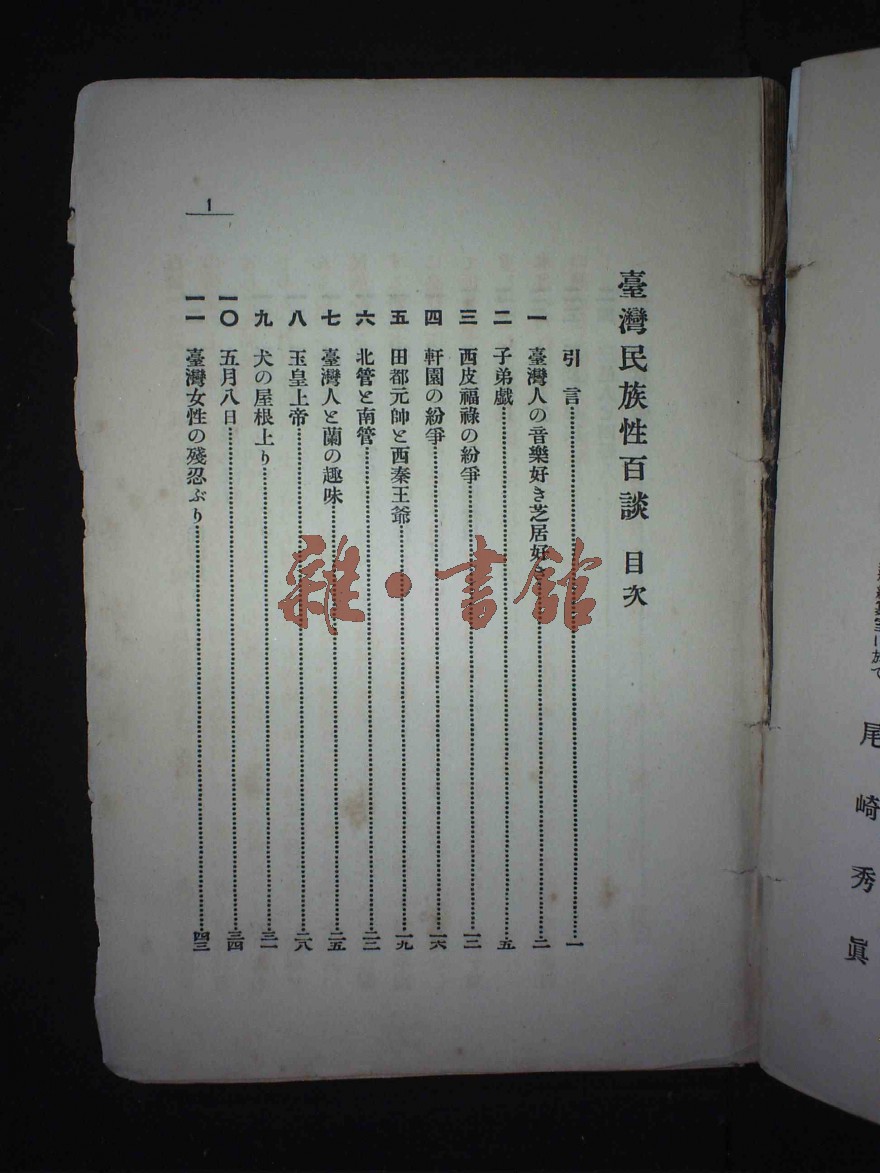 尾崎秀眞
臺灣民族性百談 目次
引言……一
一 臺灣人の音樂好き芝居好き……二
二 子弟戲……五
三 西皮福祿の紛爭……一二
四 軒園の紛爭……一六
五 田都元帥と西秦王爺……一九
六 北管と南管……二二
七 臺灣人と蘭の趣味……二五
八 玉皇上帝……二八
九 犬の屋根上り……三一
一〇 五月八日……三四
一一 臺灣女性の殘忍ぶり……四三
1
雜·書館